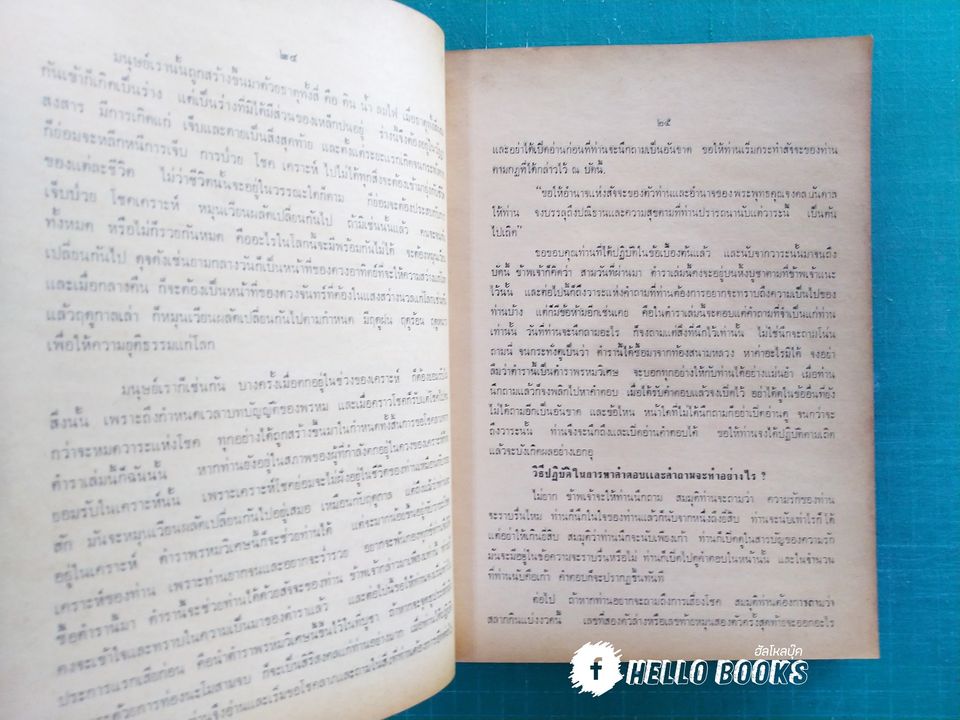 ๒๔
มนุษย์เรานั้นถูกสร้างขึ้นมาด้วยธาตุทั้งสี่ คือ ดิน น้ำ ลม ไฟ เมื่อธาตุ
กันเข้าก็เกิดเป็นร่าง แต่เป็นร่างที่มิได้มีส่วนของเหล็กปนอยู่ ร่างนี้จึงต้องอยู่ใน
สงสาร มีการเกิดแก่ เจ็บและตายเป็นสิ่งสุดท้าย และตั้งแต่ระยะแรกเกิดจน
ก็ย่อมจะหลีกหนีการเจ็บ การป่วย โชค เคราะห์ ไปไม่ได้ทุกสิ่งจะต้องเข้ามาสู่
ของแต่ละชีวิต ไม่ว่าชีวิตนั้นจะอยู่ในวรรณะใดก็ตาม ก็ย่อมจะต้องประสบกับ
เจ็บป่วย โชคเคราะห์ หมุนเวียนผลัดเปลี่ยนกันไป ถ้ามิเช่นนั้นแล้ว คนจะจน
ทั้งหมด หรือไม่ก็รวยกันหมด คืออะไรในโลกนี้จะมีพร้อมกันไม่ได้ จะต้องหมุนเวียน
เปลี่ยนกันไป ดุจดั่งเช่นยามกลางวันก็เป็นหน้าที่ของดวงอาทิตย์ที่จะให้ความสว่างแก่โลก
และเมื่อกลางคืน ก็จะต้องเป็นหน้าที่ของดวงจันทร์ที่ต้องในแสงสว่างนวลแก่โลกเช่นกัน
แล้วฤดูกาลเล่า ก็หมุนเวียนผลัดเปลี่ยนกันไปตามกำหนด มีฤดูฝน ฤดูร้อน ฤดูหนาว
เพื่อให้ความยุติธรรมแก่โลก
มนุษย์เราก็เช่นกัน บางครั้งเมื่อตกอยู่ในช่วงของเคราะห์ ก็ต้องยอมรับใน
สิ่งนั้น เพราะถึงกำหนดเวลาบทบัญญัติของพรหม และเมื่อคราวโชคก็รับแต่โชค
กว่าจะหมดวาระแห่งโชค ทุกอย่างได้ถูกสร้างขึ้นมาในกำหนดทั้งสิ้นการขอโชค
ตำราเล่มนี้ก็ฉันนั้น หากท่านยังอยู่ในสภาพของผู้ที่กำลังตกอยู่ในดวงของเคราะห์
ยอมรับในเคราะห์นั้น เพราะเคราะห์โชคย่อมจะไม่ฝังอยู่ในชีวิตของท่าน
สัก มันจะหมุนเวียนผลัดเปลี่ยนกันไปอยู่เสมอ เหมือนกับฤดูกาล แต่ถึงแม้ว่า
อยู่ในเคราะห์ ตำราพรหมวิเศษนี้ก็จะช่วยท่านได้ แต่จะมากน้อยขึ้นอยู่กับ
เคราะห์ของท่าน เพราะท่านยากจนและอยากจะร่ำรวย อยากจะพ้นทุกข์
ซื้อตำรานี้มา ตำรานี้จะช่วยท่านได้ด้วยสัจจะของท่าน ข้าพเจ้ากล่าวมา
คงจะเข้าใจและทราบในความเป็นมาของตำราแล้ว และต่อไปนี้ขอให้ท่าน
ประการแรกเสียก่อน คือนำตำราพรหมวิเศษนี้ขึ้นไว้ในที่บูชา
๒๕
และอย่าได้เปิดอ่านก่อนที่ท่านจะนึกถามเป็นอันขาด ขอให้ท่านเริ่มกระทำสัจจะของท่าน
ตามกฎที่ได้กล่าวไว้ ณ บัดนี้.
“ขอให้อำนาจแห่งสัจจะของตัวท่านและอำนาจของพระพุทธคุณจงดลบันดาล
ให้ท่าน จงบรรลุถึงปณิธานและความสุขตามที่ท่านปรารถนานับแต่วาระนี้ เป็นต้น
ไปเถิด”
ขอขอบคุณท่านที่ได้ปฏิบัติในข้อเบื้องต้นแล้ว และนับจากวาระนั้นมาจนถึง
บัดนี้ ข้าพเจ้าก็คิดว่า สามวันที่ผ่านมา ตำราเล่มนี้คงจะอยู่บนหิ้งบูชาตามที่ข้าพเจ้าแนะ
ไว้นั้น และต่อไปนี้ก็ถึงวาระแห่งคำถามที่ท่านต้องการอยากจะทราบถึงความเป็นไปของ
ท่านบ้าง แต่ก็มีข้อห้ามอีกเช่นเคย คือในตำราเล่มนี้จะตอบแต่คำถามที่จำเป็นแก่ท่าน
เท่านั้น วันที่ท่านจะนึกถามอะไร ก็จงถามแต่สิ่งที่นึกไว้เท่านั้น ไม่ใช่นึกจะถามโน่น
ถามนี่ จนกระทั่งดูเป็นว่า ตำรานี้ได้ซื้อมาจากท้องสนามหลวง หาค่าอะไรมิได้ จงอย่า
ลืมว่าตำรานี้เป็นตำราพรหมวิเศษ จะบอกทุกอย่างให้กับท่านได้อย่างแม่นยำ เมื่อท่าน
นึกถามแล้วก็จงพลิกไปหาคำตอบ เมื่อได้รับคำตอบแล้วจงเปิดไว้ อย่าได้ดูในข้ออื่นที่ยัง
ไม่ได้ถามอีกเป็นอันขาด และข้อไหน หน้าใดที่ไม่ได้นึกถามก็อย่าเปิดอ่านดู จนกว่าจะ
ถึงวาระนั้น ท่านจึงจะนึกถึงและเปิดอ่านคำตอบได้ ขอให้ท่านจงได้ปฏิบัติตามเถิด
แล้วจะบังเกิดผลอย่างเอกอุ
วิธีปฏิบัติในการหาคำตอบและคำถามจะทำอย่างไร ?
ไม่ยาก ข้าพเจ้าจะให้ท่านนึกถาม สมมุติท่านจะถามว่า ความรักของท่าน
จะราบรื่นไหม ท่านก็นึกในใจของท่านแล้วก็นับจากหนึ่งถึงยี่สิบ ท่านจะนับเท่าไรก็ได้
แต่อย่าให้เกินยี่สิบ สมมุติว่าท่านนึกจะนับเพียงเก้า ท่านก็เปิดดูในสารบัญของความรัก
มันจะมีอยู่ในข้อความจะราบรื่นหรือไม่ ท่านก็เปิดไปดูคำตอบในหน้านั้น และในจำนวน
ที่ท่านนับคือเก้า คำตอบก็จะปรากฏขึ้นทันที
ต่อไป ถ้าหากท่านอยากจะถามถึงการเสี่ยงโชค สมมุติท่านต้องการถามว่า
สลากกินแบ่งงวดนี้ เลขที่สองตัวล่างหรือเลขท้ายหมุนสองตัวครั้งสุดท้ายจะออกอะไร
ฮัลโหลบุ๊ค
HELLO BOOKS